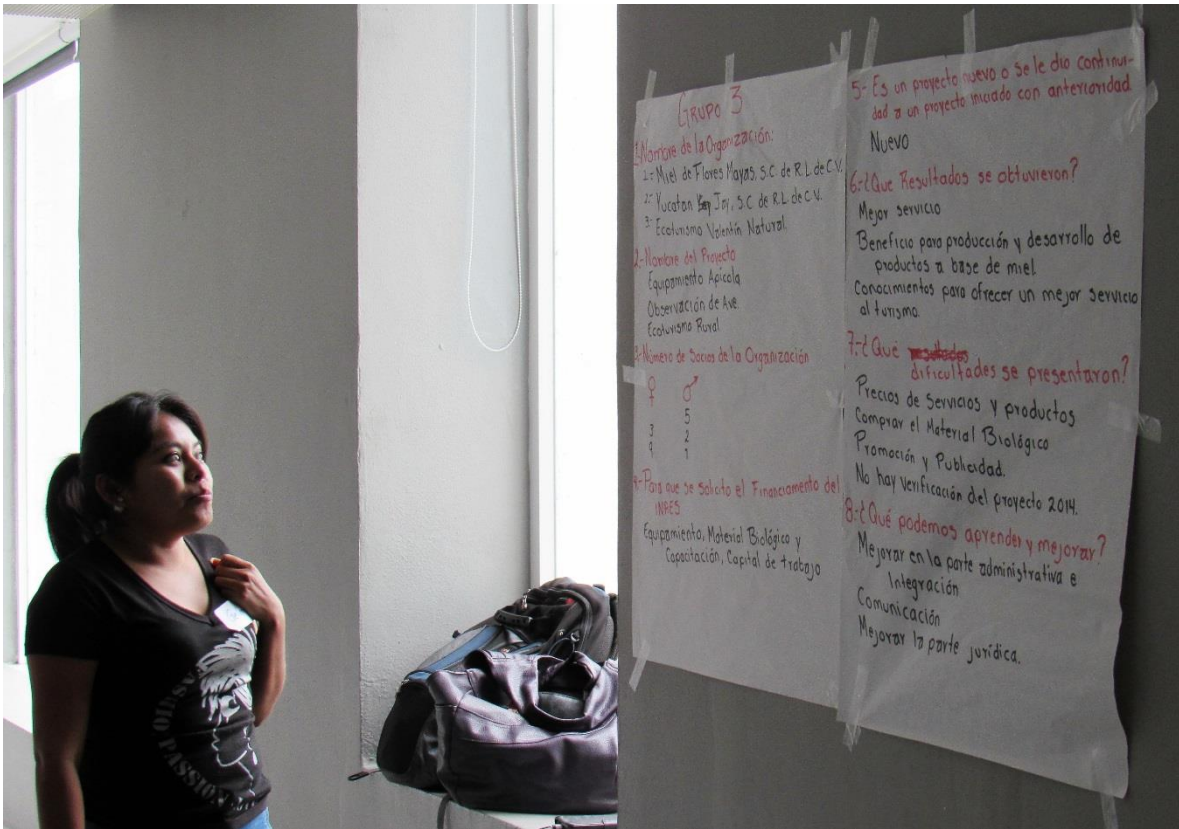 Grupo 3
1-Nombre de la Organización:
1-- Miel de Flores Mayas, S.C. de R.L de C.V.
2- Yucatan Jay, S.C de R.L. de C.V.
3- Ecoturismo Valentín Natural.
2.-Nombre del Proyecto
Equipamiento Apícola
Observación de Ave.
Ecoturismo Rural
3-Número de Socios de la Organización
♀ ♂
5
3 2
9 1
4-Para que se solicito el Financiamento del
INAES
Equipamiento, Material Biológico y
Capacitación, Capital de trabajo
5- Es un proyecto nuevo o se le dio continui-
dad a un proyecto iniciado con anterioridad
Nuevo
6.-¿Que Resultados se obtuvieron?
Mejor servicio
Beneficio para producción y desarrollo de
productos a base de miel.
Conocimientos para ofrecer un mejor servicio
al turismo.
7.-¿Qué
dificultades se presentaron?
Precios de Servicios y productos
Comprar el Material Biológico
Promoción y Publicidad.
No hay verificación del proyecto 2014.
8.-¿Qué podemos aprender y mejorar?
Mejorar en la parte administrativa e
Integración
Comunicación
Mejorar la parte jurídica.
PASSION